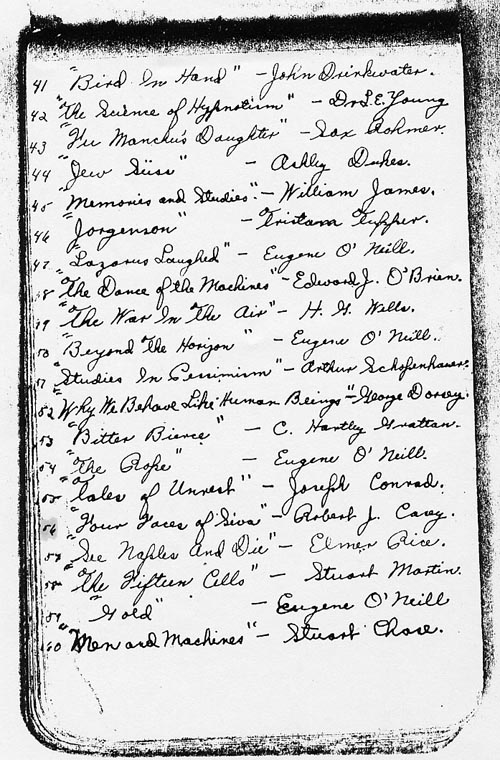 41 "Bird In Hand" - John Drinkwater.
42 "The Science of Hypnotism" - Dr L.E. Young
43 "Fu Manchu's Daughter" - Sax Rohmer.
44 "Jew Süss" - Ashley Dukes.
45 "Memories and Studies". - William James.
46 "Jorgenson" - Tristram Tupper.
47 "Lazarus Laughed" - Eugene O'Neill.
48 "The Dance of the Machines" - Edward J. O'Brien.
49 "The War In The Air" - H. G. Wells.
50 "Beyond The Horizon" - Eugene O'Neill.
51 "Studies In Pessimism" - Arthur Schopenhauer.
52 "Why We Behave Like Human Beings" - George Dorsey.
53 "Bitter Bierce" - C. Hartley Grattan.
54 "The Rope" - Eugene O'Neill.
55 "Tales of Unrest" - Joseph Conrad.
56 "Four Faces of Siva" - Robert J. Casey.
57 "See Naples And Die" - Elmer Rice.
58 "The Fifteen Cells" - Stuart Martin.
59 "Gold" - Eugene O'Neill
60 "Men and Machines" - Stuart Chase.